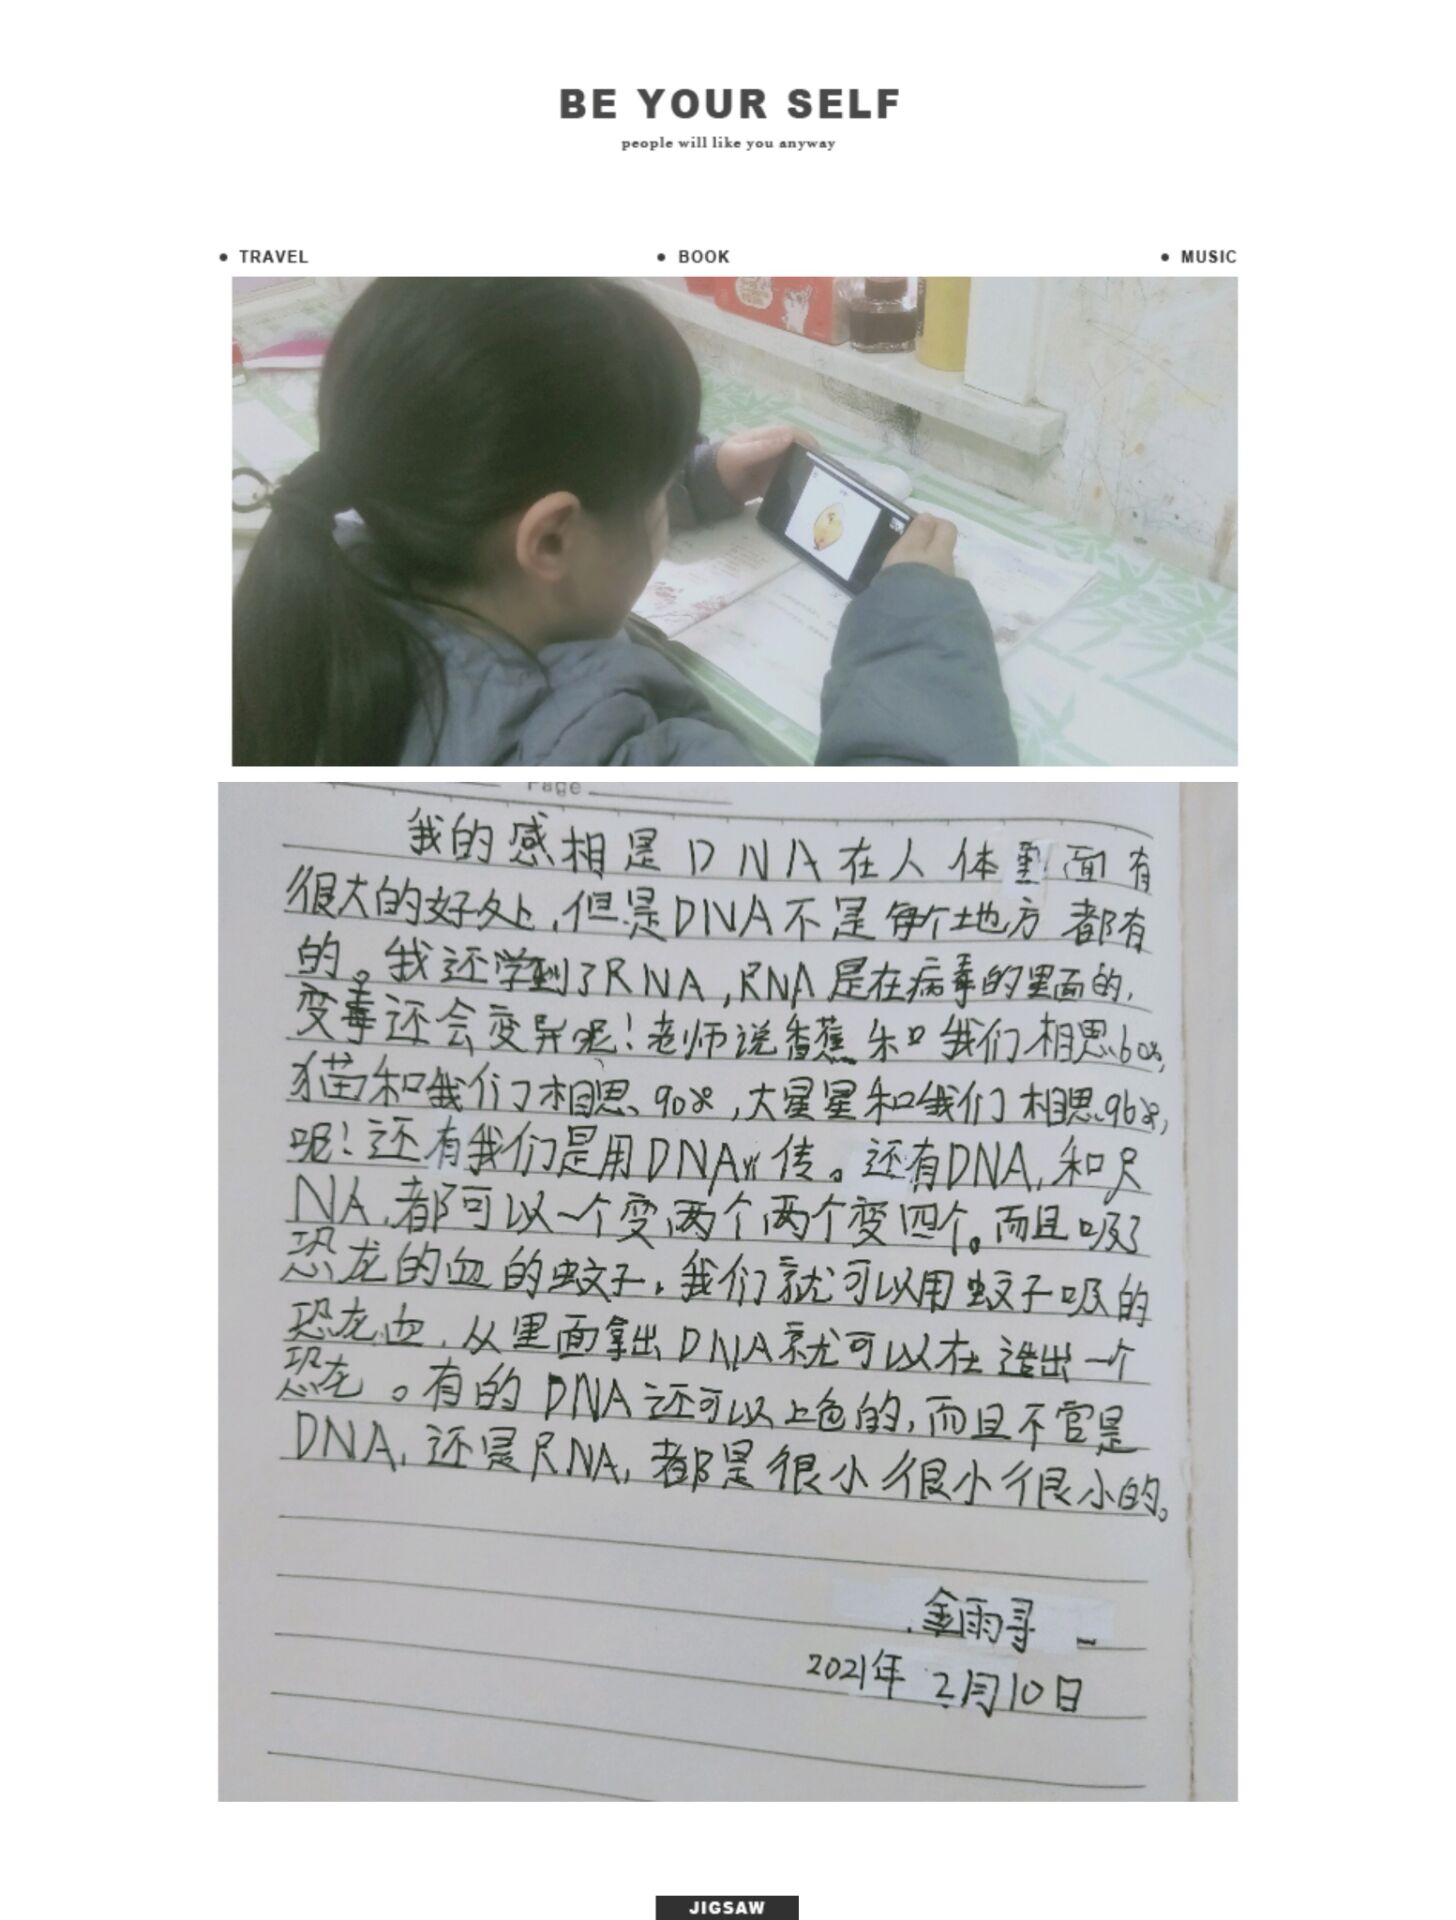 BE YOUR SELF
people will like you anyway
• TRAVEL
• BOOK
• MUSIC
Page
我的感相是DNA在人体里面有
很大的好处,但是DNA不是每个地方都有
的。我还学到了RNA,RNA是在病毒的里面的,
变毒还会变异呢!老师说香蕉和我们相思60%,
猫和我们相思90%,大星星和我们相思96%,
呢!还有我们是用DNA传。还有DNA,和R
NA,都可以一个变两个两个变四个。而且吸了
恐龙的血的蚊子,我们就可以用蚊子吸的
恐龙血,从里面拿出DNA就可以在造出一个
恐龙。有的DNA还可以上色的,而且不官是
DNA,还是RNA,都是很小很小很小的。
金雨寻
2021年2月10日
JIGSAW